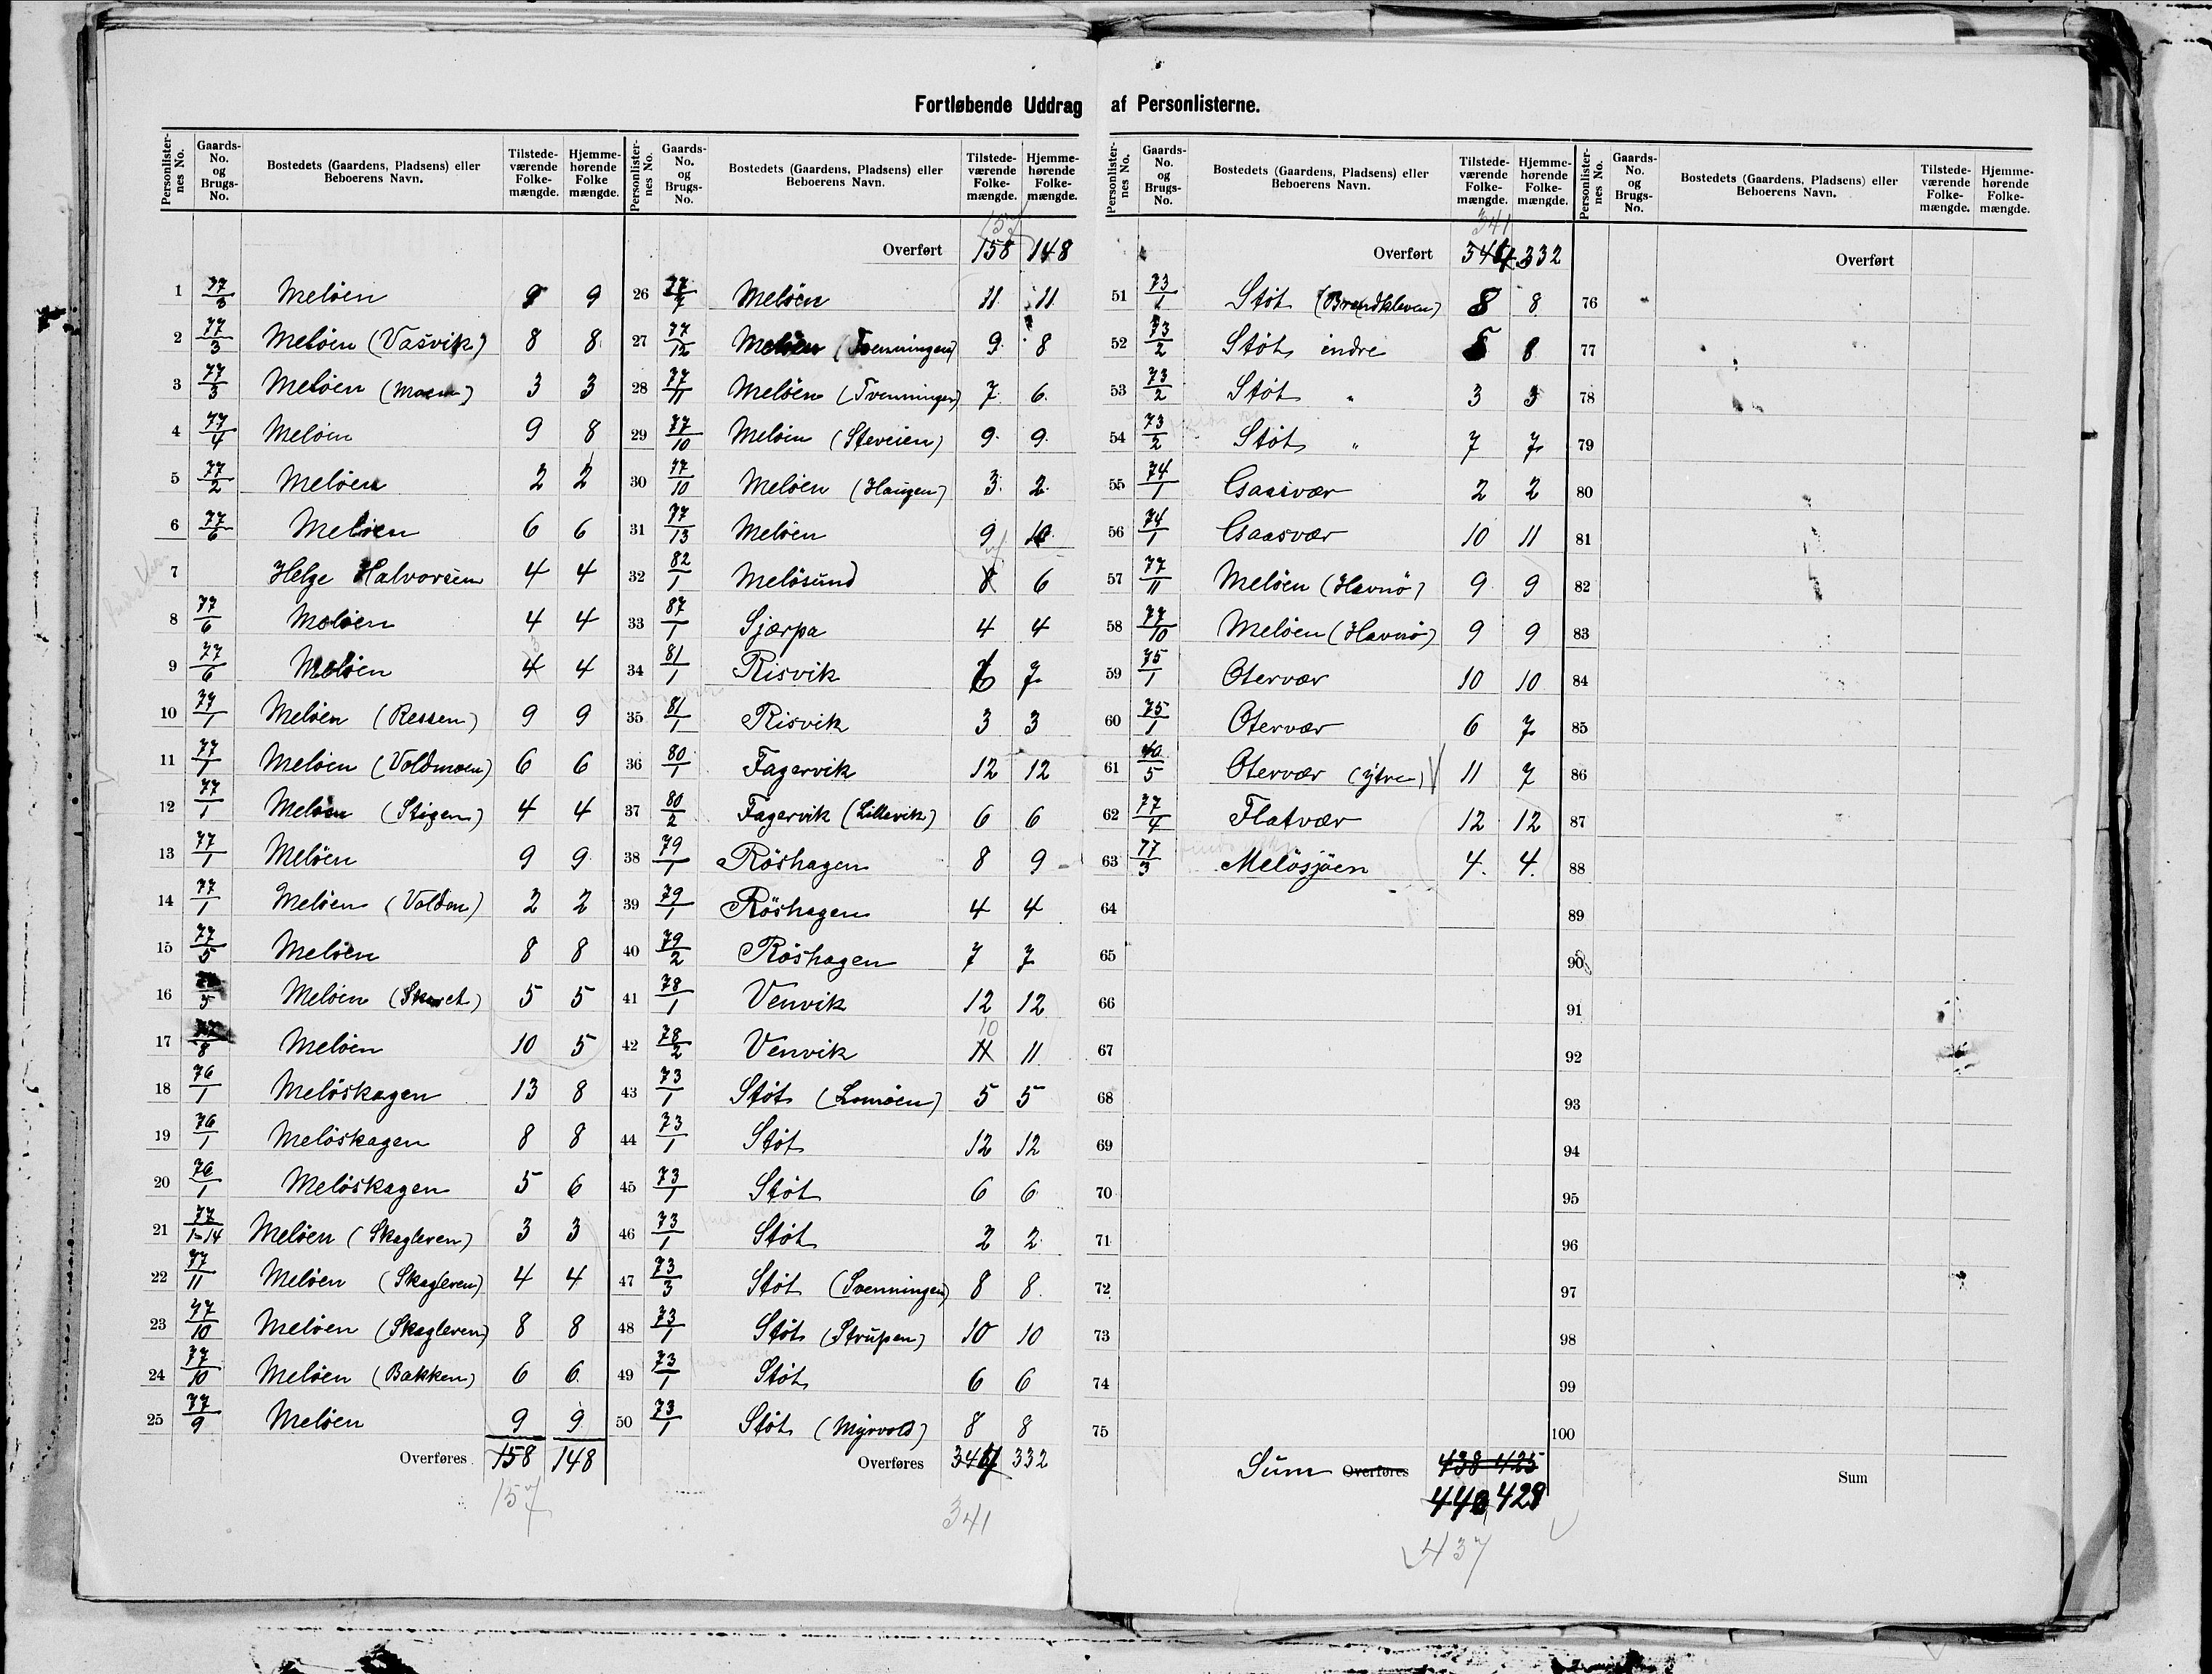 Fortløbende Uddrag af Personlisterne.
Personlisternes No. Gaards-No. og Brugs-No. Bostedets (Gaardens, Pladsens) eller Beboerens Navn. Tilstedeværende Folkemængde. Hjemmehørende Folkemængde.
1 77/3 Meløen 9 9
2 77/3 Meløen (Vasvik) 8 8
3 77/3 Meløen (Moen) 3 3
4 77/4 Meløen 9 8
5 77/2 Meløen 2 2
6 77/6 Meløen 6 6
7 Helge Halvorsen 4 4
8 77/6 Meløen 4 4
9 77/6 Meløen 4 4
10 77/1 Meløen (Ressen) 9 9
11 77/1 Meløen (Voldmoen) 6 6
12 77/1 Meløen (Stigen) 4 4
13 77/1 Meløen 9 9
14 77/1 Meløen (Volden) 2 2
15 77/5 Meløen 8 8
16 /5 Meløen 5 5
17 77/8 Meløen 10 5
18 76/1 Meløskagen 13 8
19 76/1 Meløskagen 8 8
20 76/1 Meløskagen 5 6
21 77/1-14 Meløen (Skagleven) 3 3
22 77/11 Meløen (Skagleven) 4 4
23 77/10 Meløen (Skagleven) 8 8
24 77/10 Meløen (Bakken) 6 6
25 77/9 Meløen 9 9
Overføres 158 148
157
Personlisternes No. Gaards-No. og Brugs-No. Bostedets (Gaardens, Pladsens) eller Beboerens Navn. Tilstedeværende Folkemængde. Hjemmehørende Folkemængde.
157
Overført 158 148
26 77/7 Meløen 11 11
27 77/12 Meløen (Tvenningen) 9 8
28 77/11 Meløen (Tvenningen) 7 6
29 77/10 Meløen (Steveien) 9 9
30 77/10 Meløen (Haugen) 3 2
31 77/13 Meløen 9 10
32 82/1 Meløsund 8 6
33 87/1 Sjærpa 4 4
34 81/1 Risvik 6 7
35 81/1 Risvik 3 3
36 80/1 Fagervik 12 12
37 80/2 Fagervik (Lillevik) 6 6
38 79/1 Röshagen 8 9
39 79/1 Röshagen 4 4
40 79/2 Röshagen 7 7
41 78/1 Venvik 12 12
10
42 78/2 Venvik 11 11
43 73/1 Støt (Lomøen) 5 5
44 73/1 Støt 12 12
45 73/1 Støt 6 6
46 73/1 Støt 2 2
47 73/3 Støt (Svenningen) 8 8
48 73/1 Støt (Strupen) 10 10
49 73/1 Støt 6 6
50 73/1 Støt (Myrvold) 8 8
Overføres 344 332
341
Personlisternes No. Gaards-No. og Brugs-No. Bostedets (Gaardens, Pladsens) eller Beboerens Navn. Tilstedeværende Folkemængde. Hjemmehørende Folkemængde.
341
Overført 344 332
51 73/1 Støt (Brendkleven) 8 8
52 73/2 Støt indre 8
53 73/2 Støt " 3 3
54 73/2 Støt " 7 7
55 74/1 Gaasvær 2 2
56 74/1 Gaasvær 10 11
57 77/11 Meløen (Havnø) 9 9
58 77/10 Meløen (Havnø) 9 9
59 75/1 Otervær 10 10
60 75/1 Otervær 6 7
61 40/5 Otervær (ytre) 11 7
62 77/4 Flatvær 12 12
63 77/3 Meløsjøen 4 4
64
65
66
67
68
69
70
71
72
73
74
75
Sum Overføres 438 425
442 429
437
Personlisternes No. Gaards-No. og Brugs-No. Bostedets (Gaardens, Pladsens) eller Beboerens Navn. Tilstedeværende Folkemængde. Hjemmehørende Folkemængde.
Overført
76
77
78
79
80
81
82
83
84
85
86
87
88
89
90
91
92
93
94
95
96
97
98
99
100
Sum